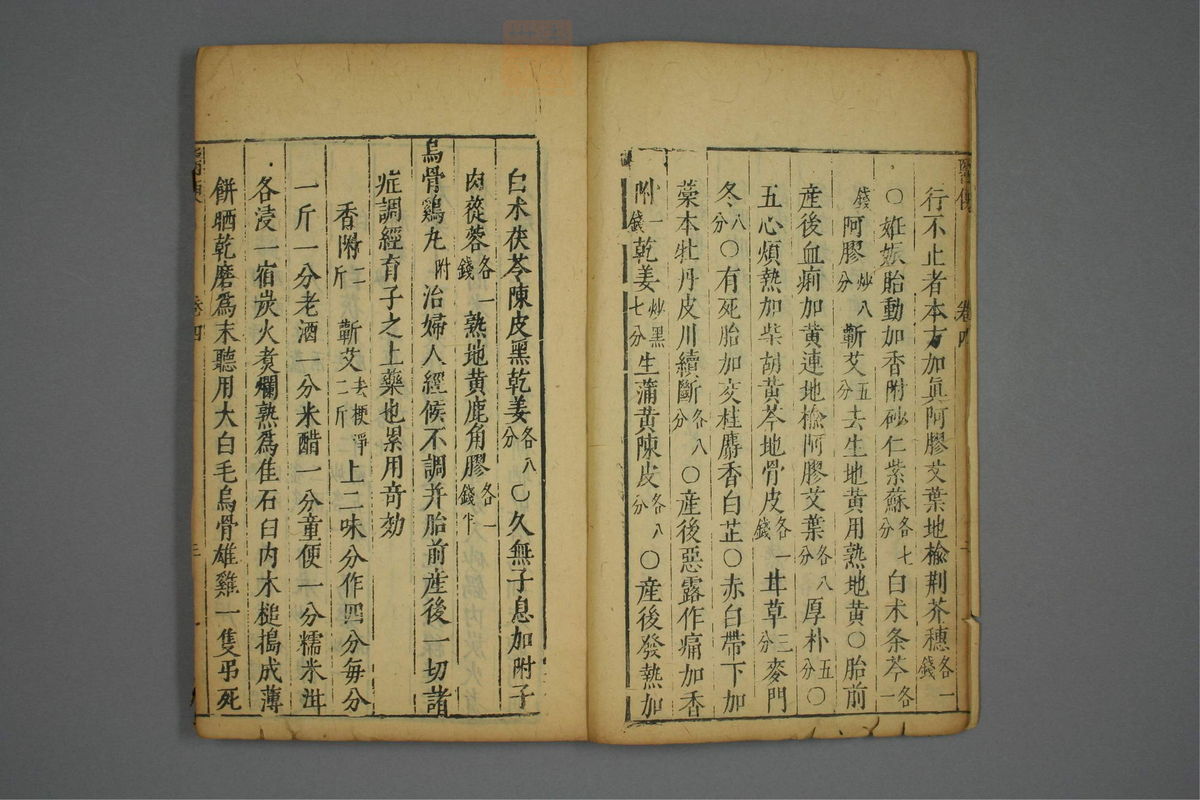 行不止者本方加真阿膠艾葉地榆荆芥穗各一錢
〇姙娠胎動加香附砂仁紫蘇各七分白朮条芩各一
錢阿膠炒八分蘄艾五分去生地黄用熟地黄〇胎前
産後血痢加黄連地榆阿膠艾葉各八分厚朴五分〇
五心煩熱加柴胡黄芩地骨皮各一錢甘草三分麥門
冬八分〇有死胎加交桂麝香白芷〇赤白帶下加
藁本牡丹皮川續斷各八分〇産後惡露作痛加香
附一錢乾姜炒黑七分生蒲黄陳皮各八分〇産後發熱加
卷四
白朮茯苓陳皮黑乾姜各八分〇久無子息加附子
肉蓯蓉各一錢熟地黄鹿角膠各一錢半
烏骨鷄丸附治婦人經候不調并胎前産後一切諸
症調經育子之上藥也累用竒効
香附二斤蘄艾去梗淨二斤上二味分作四分每分
一斤一分老酒一分米醋一分童便一分糯米泔
各浸一宿炭火煑爛熟爲佳石臼内木槌搗成薄
餅晒乾磨爲末聽用大白毛烏骨雄雞一隻弔死
卷四